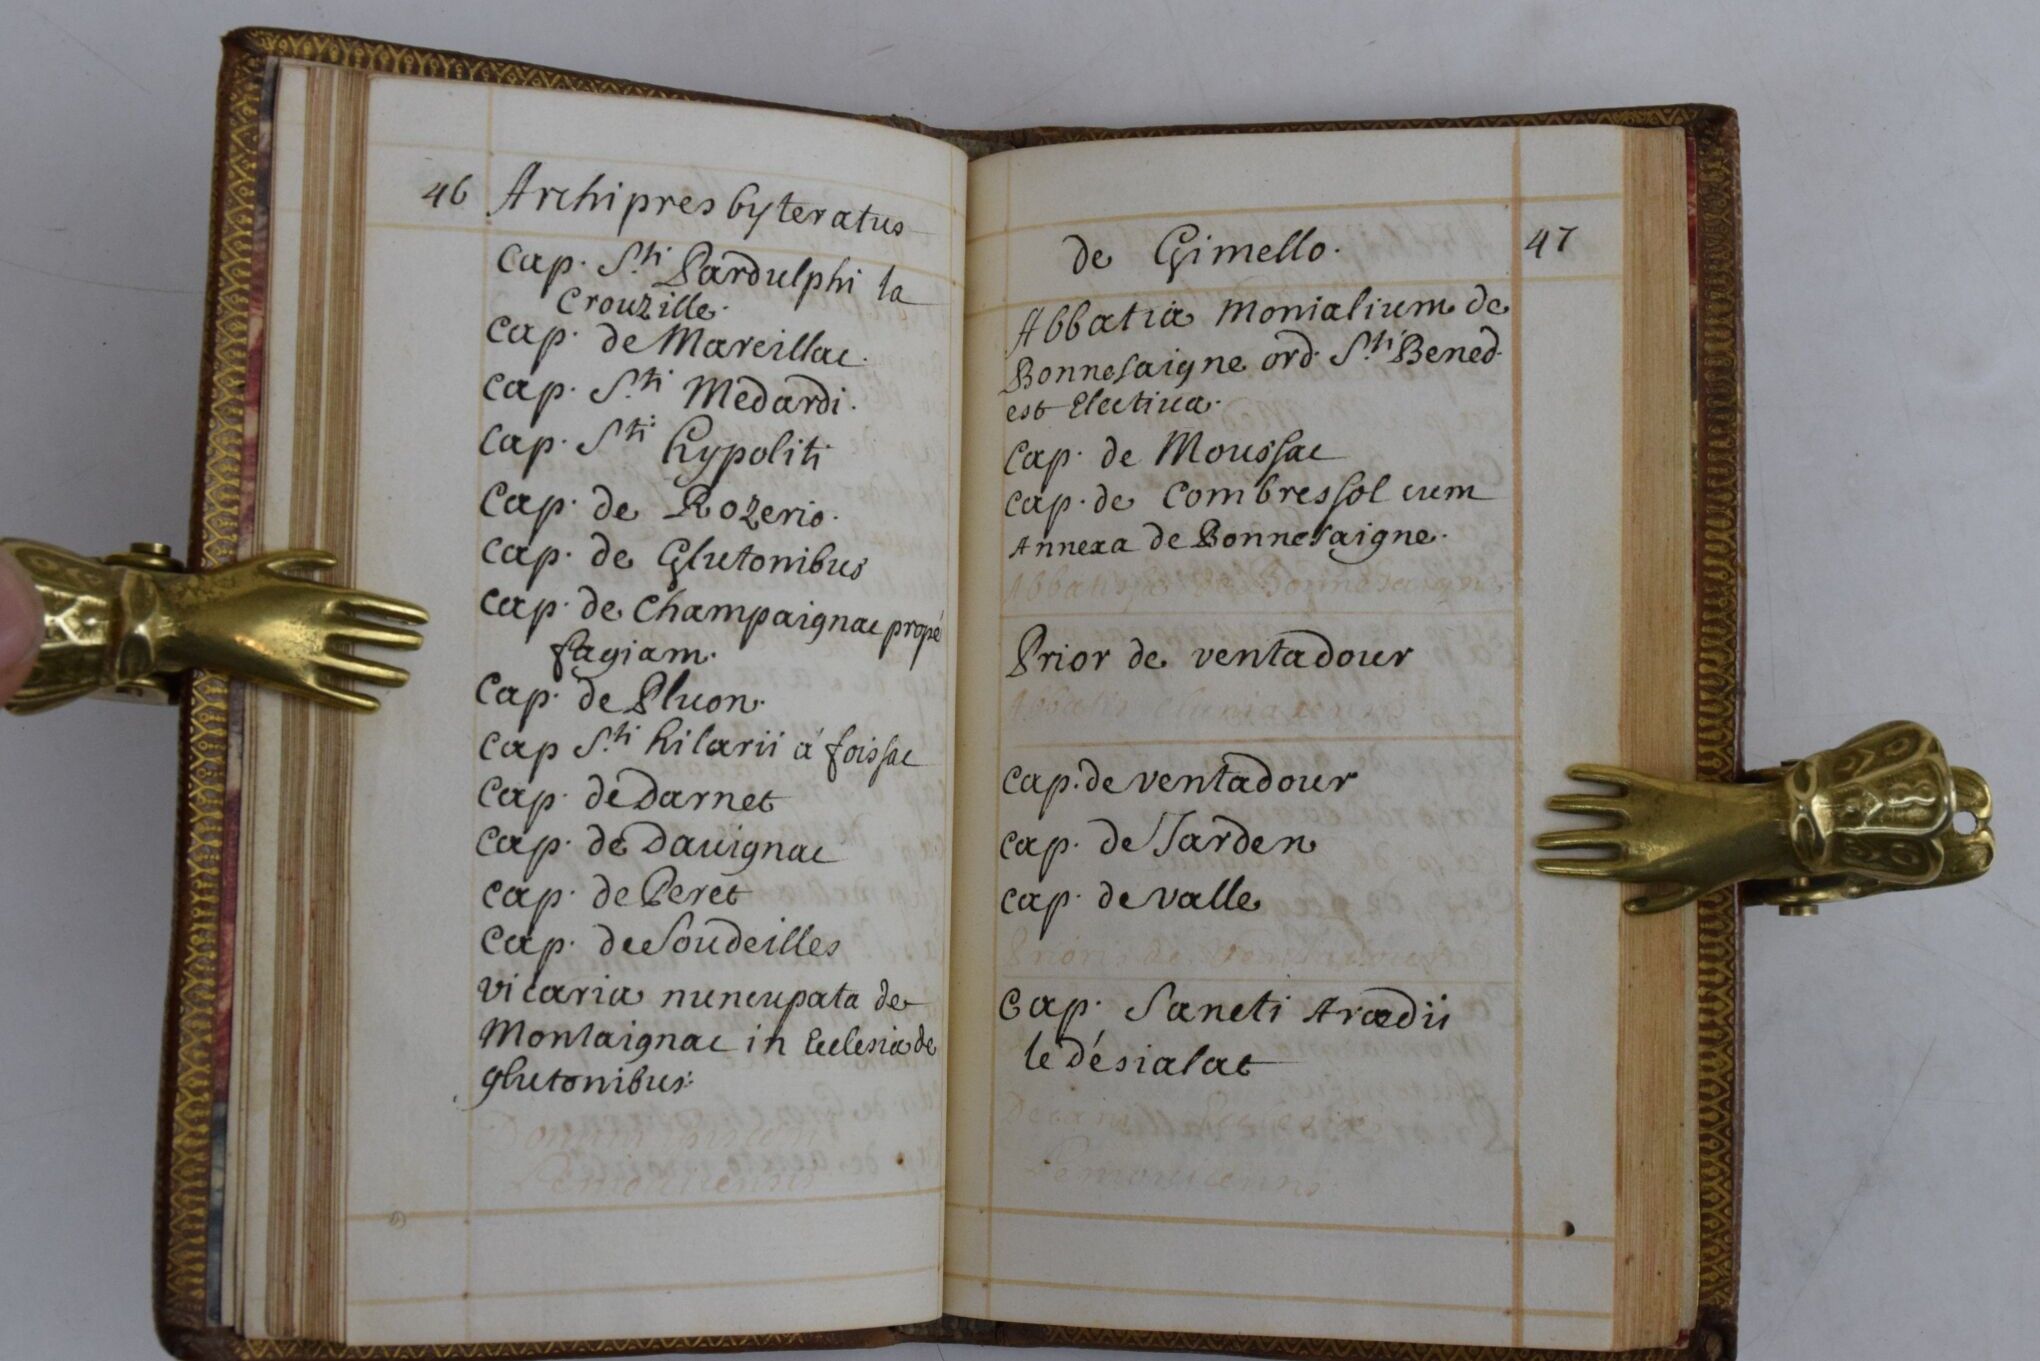 46 Archipresbyteratus
Cap. S.ti Pardulphi la
Crouzille.
Cap. de Marcillac.
Cap. S.ti Medardi.
Cap. S.ti hypoliti
Cap. de Rozerio.
Cap. de Glutonibus
Cap. de Champaignac propé
fagiam.
Cap. de Pluon.
Cap S.ti hilarii á foissac
Cap. de Darnet
Cap. de Davignac
Cap. de Peret
Cap. de Soudeilles
vicaria nuncupata de
Montaignac in Ecclesia de
glutonibus.
Lemovicensis
de Gimello. 47
Abbatia monialium de
Bonnesaigne ord. S.ti Bened.
est Electiva.
Cap. de Moussac
Cap. de Combressol cum
Annexa de Bonnesaigne.
Abbatissa de Bonnesaigne.
Prior de ventadour
Abbatis Cluniacensis
Cap. de ventadour
Cap. de Jarden
Cap. de valle
Prioris de Ventadour
Cap. Sancti Aradii
le désialat
Decani Ecclesiæ
Lemovicensis.